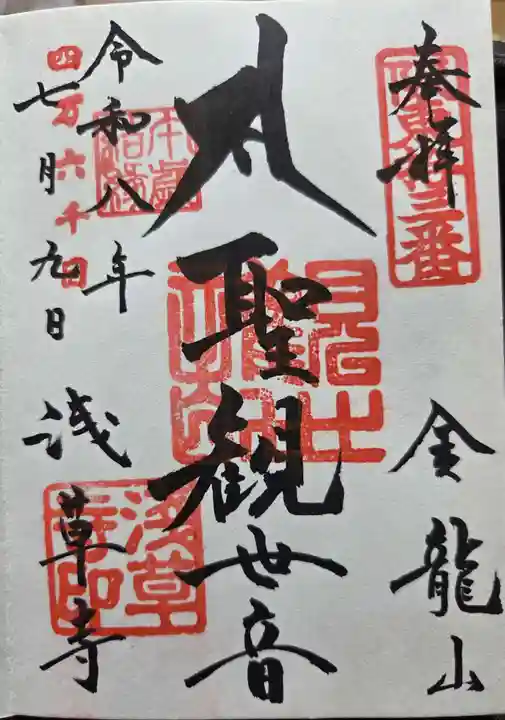 奉拝
坂東十三番
金龍山
聖観世音
令和八年
四万六千日
七月九日
浅草寺
浅草寺印